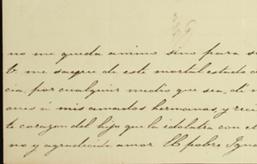 no me queda animo sino para su
te me saque de este mortal estado a
cia, por cualquier medio que sea, di m
ones à mis amadas hermanas y reci
te corazon del hijo que la idolatra con et
no y agradecido amor. El pobre Igna